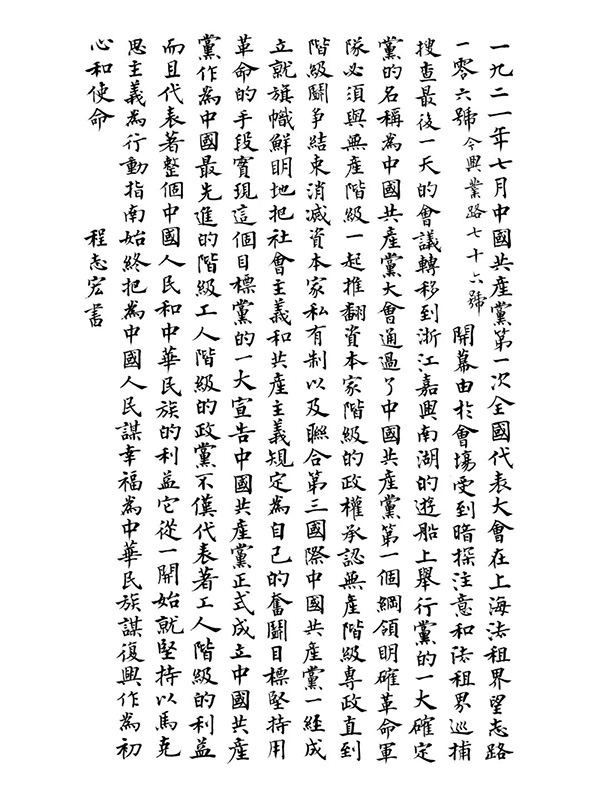 一九二一年七月中國共產黨第一次全國代表大會在上海法租界望志路
一零六號今興業路七十六號開幕由於會場受到暗探注意和法租界巡捕
搜查最後一天的會議轉移到浙江嘉興南湖的遊船上舉行黨的一大確定
黨的名稱為中國共產黨大會通過了中國共產黨第一個綱領明確革命軍
隊必須與無產階級一起推翻資本家階級的政權承認無產階級專政直到
階級鬪爭結束消滅資本家私有制以及聯合第三國際中國共產黨一經成
立就旗幟鮮明地把社會主義和共產主義規定為自己的奮鬪目標堅持用
革命的手段實現這個目標黨的一大宣告中國共產黨正式成立中國共產
黨作為中國最先進的階級工人階級的政黨不僅代表著工人階級的利益
而且代表著整個中國人民和中華民族的利益它從一開始就堅持以馬克
思主義為行動指南始終把為中國人民謀幸福為中華民族謀復興作為初
心和使命
程志宏書